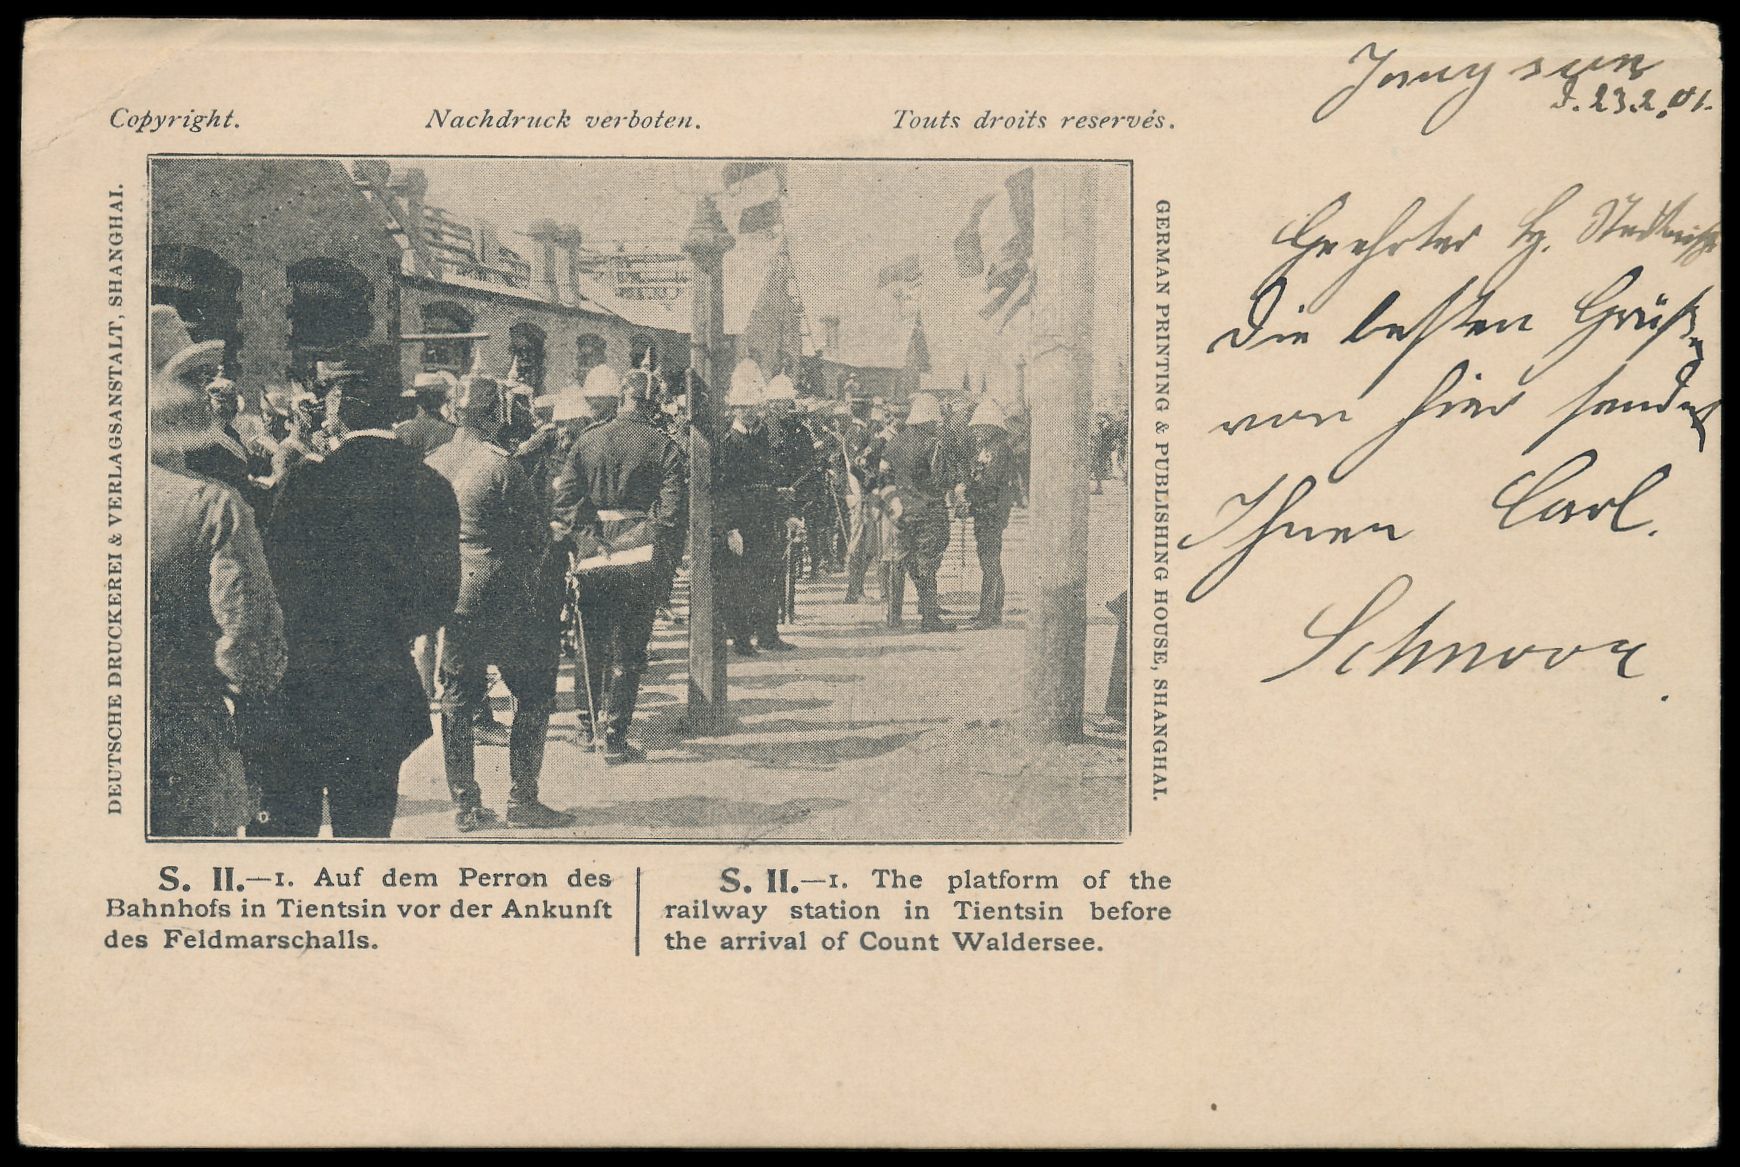 Copyright.
Nachdruck verboten.
Touts droits reservés.
DEUTSCHE DRUCKEREI & VERLAGSANSTALT, SHANGHAI.
GERMAN PRINTING & PUBLISHING HOUSE, SHANGHAI.
S. II.—1. Auf dem Perron des
Bahnhofs in Tientsin vor der Ankunft
des Feldmarschalls.
S. II.—1. The platform of the
railway station in Tientsin before
the arrival of Count Waldersee.
d. 23.2.01.
Geehrter H.
Die besten Grüße
von hier sendet
Ihnen Carl.
Schnoor.